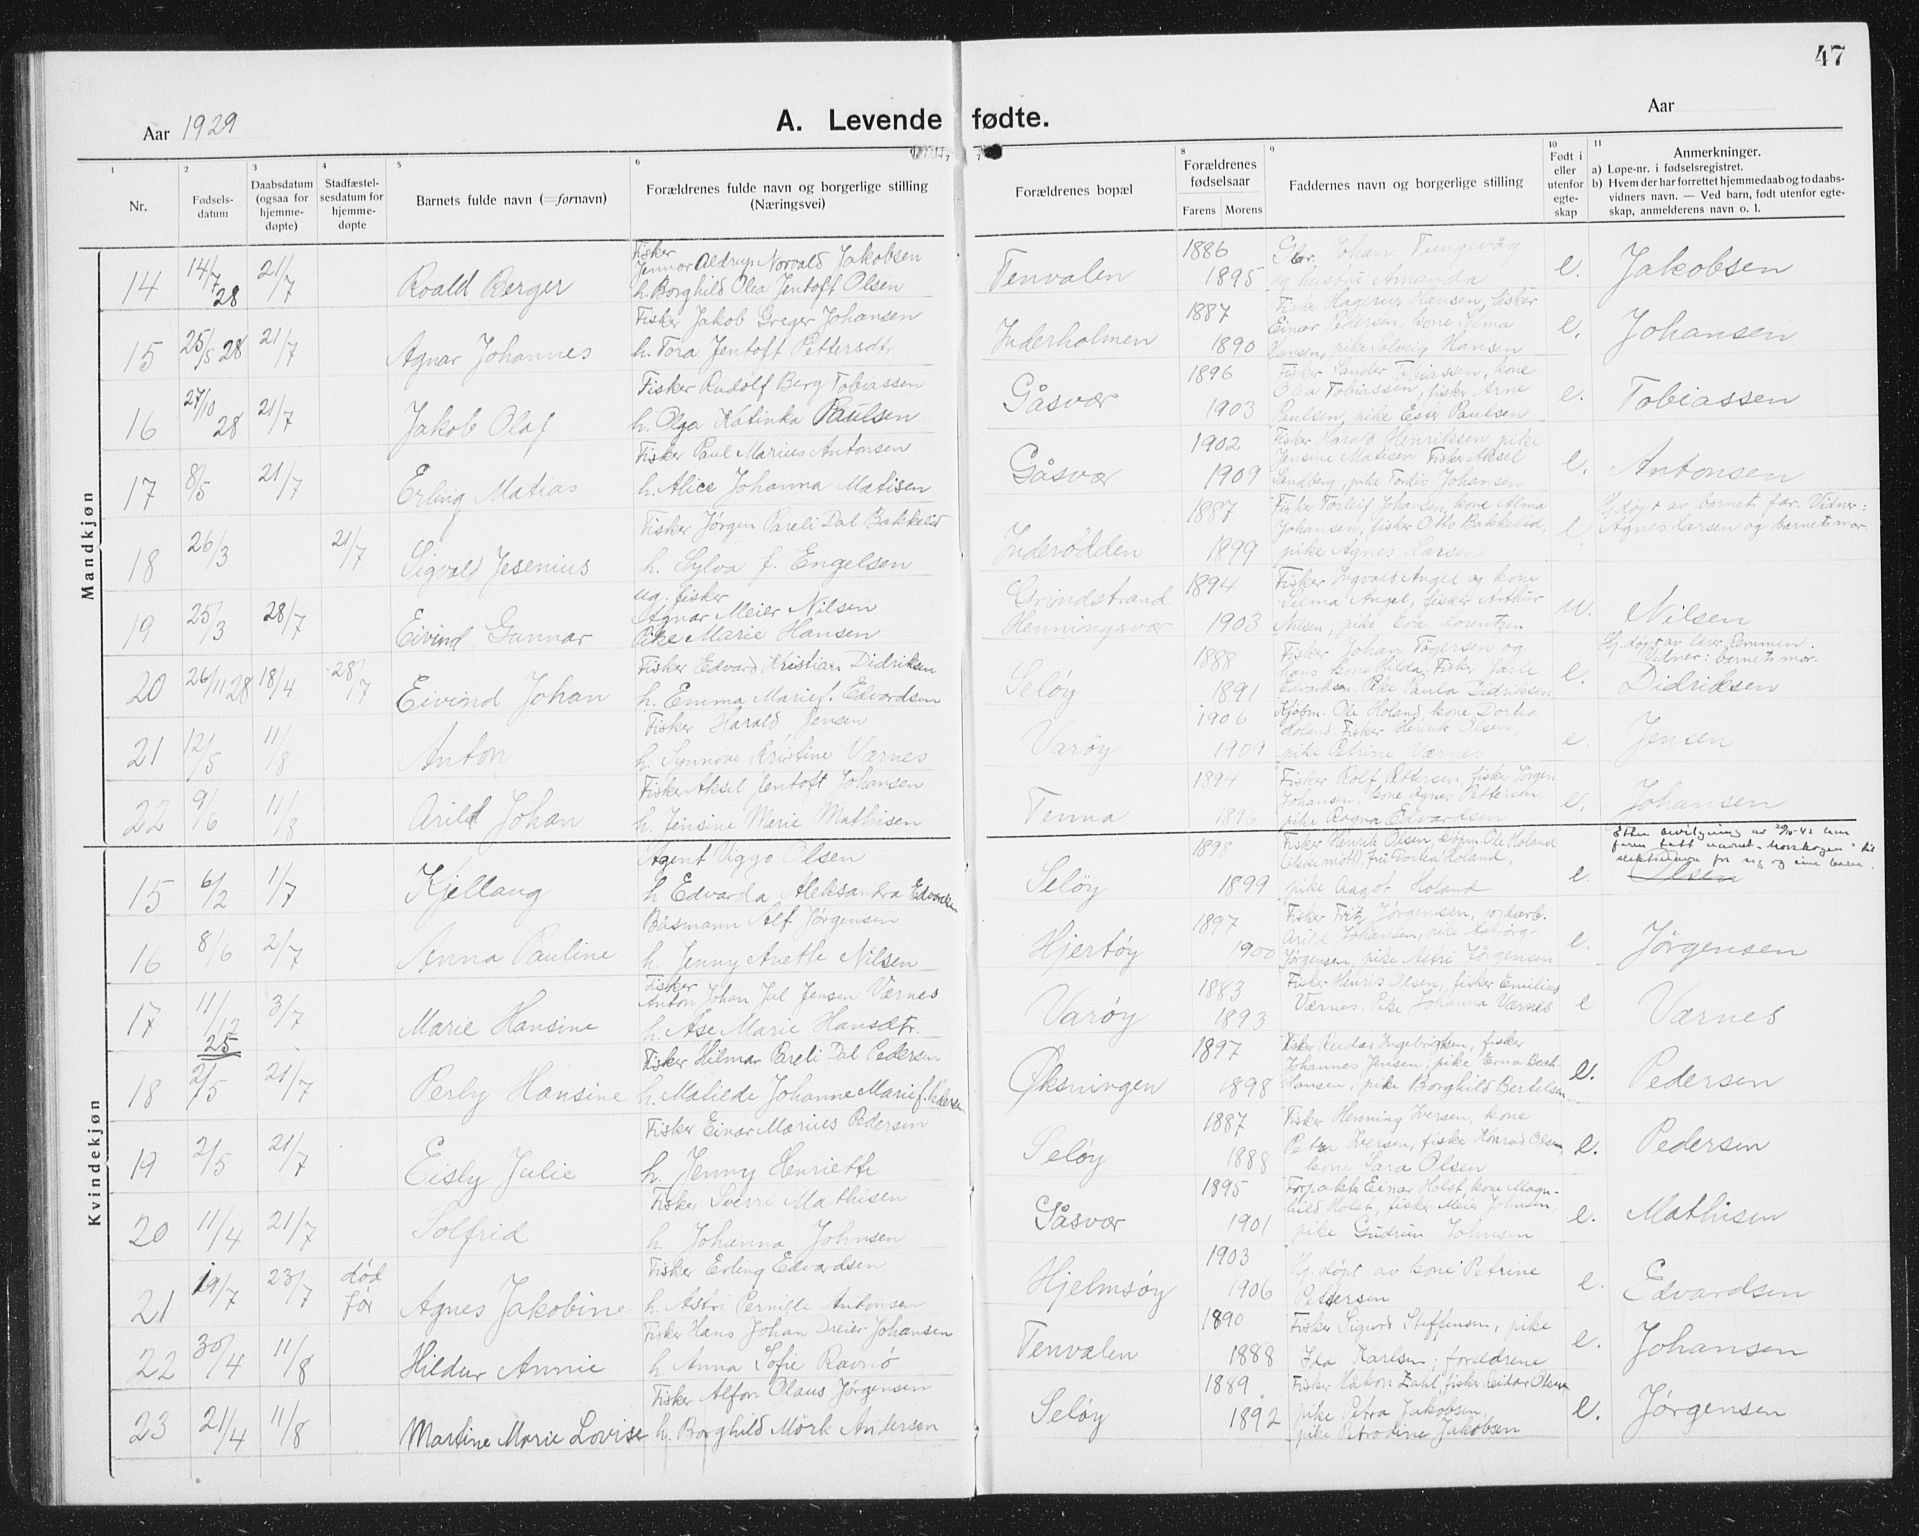 47
Aar 1929
A. Levende fødte.
Aar
1 2 3 4 5 6 8 9 10 11
Nr.
Fødsels-
datum
Daabsdatum
(ogsaa for
hjemme-
døpte)
Stadfæstel-
sesdatum for
hjemme-
døpte
Barnets fulde navn (=fornavn)
Forældrenes fulde navn og borgerlige stilling
(Næringsvei)
Forældrenes bopæl
Forældrenes
fødselsaar
Farens Morens
Faddernes navn og borgerlige stilling
Født i
eller
utenfor
egte-
skap
Anmerkninger.
a) Løpe-nr. i fødselsregistret.
b) Hvem der har forrettet hjemmedaab og to daabs-
vidners navn. — Ved barn, født utenfor egte-
skap, anmelderens navn o. l.
Mandkjøn
14 14/7 28 21/7 Roald Berger
Fisker
Jennor Aldryn Norvald Jakobsen
h. Borghild Olea Jentoft Olsen
Tenvalen 1886 1895
Gbr. Johan Tungevåg
og hustru Amanda
e. Jakobsen
15 25/5 28 21/7 Agnar Johannes
Fisker Jakob Greger Johansen
h. Tora Jentoft Pettersdtr.
Inderholmen 1887 1890
Fisker Hagerup Hansen, fisker
Einar Pedersen, kone Alma
Hansen, pike Solveig Hansen
e. Johansen
16 27/10 28 21/7 Jakob Olaf
Fisker Rudolf Berg Tobiassen
h. Olga Katinka Paulsen
Gåsvær 1896 1903
Fisker Sander Tobiassen, kone
Olea Tobiassen, fisker Arne
Paulsen, pike Ester Paulsen
e. Tobiassen
17 8/5 21/7 Erling Matias
Fisker Paul Marius Antonsen
h. Alice Johanna Matisen
Gåsvær 1902 1909
Fisker Harald Henriksen, pike
Jensine Matisen Fisker Aksel
Sandberg, pike Tordis Johansen
e. Antonsen
18 26/3 21/7 Sigvald Jesenius
Fisker Jørgen Pareli Dal Bakkelid
h. Sylva f. Engelsen
Inderødden 1887 1899
Fisker Torleif Johansen, kone Alma
Johansen, fisker Otto Bakkelid,
pike Agnes Larsen
e.
Hj.døpt av barnet far. Vidner:
Agnes Larsen og barnets mor
19 25/3 28/7 Eivind Gunnar
ug. fisker
Agnar Meier Nilsen
Pike Marie Hansen
Grindstrand
Henningsvær
1894 1903
Fisker Ingvald Angel og kone
Selma Angel, fisker Arthur
Nilsen, pike Eva Lorentzen
u. Nilsen
20 26/11 28 18/4 28/7 Eivind Johan
Fisker Edvard Kristian Didriksen
h. Emma Marie f. Edvardsen
Seløy 1888 1891
Fisker Johan Tøgersen og
hans kone Hilda, Fisker Jarle
Edvardsen. Pike Paula Didriksen
e.
Hj.døpt av lærer Lommen.
Vidner: barnets mor.
Didriksen
21 12/5 11/8 Anton
Fisker Harald Jensen
h. Synnøve Kristine Værnes
Varøy 1906 1909
Kjøbm. Ole Holand, kone Dortea
Holand, Fisker Henrik Olsen,
pike Petrine Værnes
e. Jensen
22 9/6 11/8 Arild Johan
Fisker Aksel Jentoft Johansen
h. Jensine Marie Mathisen
Tenna 1894 1896
Fisker Rolf Pettersen, fisker Jørgen
Johansen, kone Agnes Pettersen,
pike Ragna Edvardsen
e. Johansen
Kvindekjøn
15 6/2 1/7 Kjellaug
Agent Viggo Olsen
h Edvarda Aleksandra Edvardsen
Seløy 1898 1899
Fisker Henrik Olsen, kjøpm Ole Holand
Fru Dortea Holand,
pike Aagot Holand
e.
Efter bevilgning av
faren tatt navnet til
slektsnavn for sig og sine barn
Olsen
16 8/6 2/7 Anna Pauline
Båsmann Alf Jørgensen
h. Jenny Anette Nilsen
Hjertøy 1897 1900
Fisker Fritz Jørgensen, jordarb.
Arild Johansen, pike Asbjørg
Jørgensen, pike Astri Jørgensen
e. Jørgensen
17 11/12 25 3/7 Marie Hansine
Fisker
Anton Johan Jul Jensen Værnes
h. Åse Marie Hansdtr.
Varøy 1883 1893
Fisker Henrik Olsen, fisker Emilius
Værnes. Pike Johanna Værnes
e Værnes
18 2/5 21/7 Perly Hansine
Fisker Hilmar Pareli Dal Pedersen
h. Matilde Johanne Marie f. Pedersen
Øksningen 1897 1898
Fisker Reidar Ingebrigtsen, fisker
Johannes Jensen, pike Erna Bech
Hansen, pike Borghild Bertelsen
e. Pedersen
19 2/5 21/7 Eisly Julie
Fisker Einar Marius Pedersen
h. Jenny Henriette
Seløy 1887 1888
Fisker Henning Iversen, kone
Petra Iversen, fisker Konrad Olsen,
kone Sara Olsen
e. Pedersen
20 11/4 21/7 Solfrid
Fisker Sverre Mathisen
h. Johanna Johnsen
Gåsvær 1895 1901
Forpakter Einar Holst, kone Magn-
hild Holst, fisker Meier Johnsen,
pike Gudrun Johnsen
e. Mathisen
21 19/7 23/7 død
før
Agnes Jakobine
Fisker Erling Edvardsen
h. Astri Pernille Antonsen
Hjelmsøy 1903 1906
Hj.døpt av kone Petrine
Pettersen
e. Edvardsen
22 30/4 11/8 Hildur Annie
Fisker Hans Johan Dreier Johansen
h. Anna Sofie Ravnå
Tenvalen 1890 1888
Fisker Sigurd Steffensen, pike
Ida Karlsen; foreldrene
e. Johansen
23 21/4 11/8 Martine Marie Lovise
Fisker Alfon Olaus Jørgensen
h. Borghild Mørk Andersen
Seløy 1889 1892
Fisker Håkon Zahl, fisker Reidar Olsen
pike Petra Jakobsen,
pike Petrodine Jakobsen
e. Jørgensen